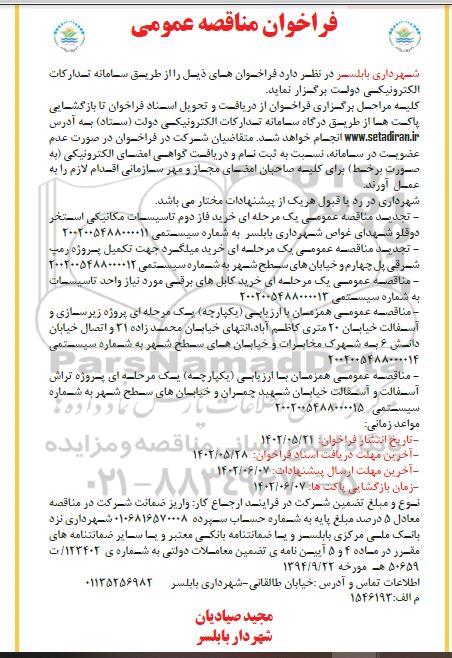 فراخوان مناقصه عمومی
شهرداری بابلسر در نظر دارد فراخوان های ذیل را از طریق سامانه تدارکات
الکترونیکی دولت برگزار نماید.
کلیه مراحل برگزاری فراخوان از دریافت و تحویل اسناد فراخوان تا بازگشایی
پاکت ها از طریق درگاه سامانه تدارکات الکترونیکی دولت (ستاد) به آدرس
www.setadiran.ir انجام خواهد شد. متقاضیان شرکت در فراخوان در صورت عدم
عضویت در سامانه، نسبت به ثبت نام و دریافت گواهی امضای الکترونیکی (به
صورت برخط) برای کلیه صاحبان امضای مجاز و مهر سازمانی اقدام لازم را به
عمل آورند.
شهرداری در رد یا قبول هریک از پیشنهادات مختار می باشد.
- تجدید مناقصه عمومی یک مرحله ای خرید فاز دوم تاسیسات مکانیکی استخر
دوقلو شهدای غواص شهرداری بابلسر به شماره سیستمی ۲۰۰۲۰۰۵۴۸۸۰۰۰۰۱۱
- تجدید مناقصه عمومی یک مرحله ای خرید میلگرد جهت تکمیل پروژه رمپ
شرقی پل چهارم و خیابان های سطح شهر به شماره سیستمی ۲۰۰۲۰۰۵۴۸۸۰۰۰۰۱۲
- مناقصه عمومی یک مرحله ای خرید کابل های برقی مورد نیاز واحد تاسیسات
به شماره سیستمی ۲۰۰۲۰۰۵۴۸۸۰۰۰۰۱۳
- مناقصه عمومی همزمان با ارزیابی (یکپارچه) یک مرحله ای پروژه زیرسازی و
آسفالت خیابان ۲۰ متری کاظم آباد،انتهای خیابان محمدزاده ۳۱ و اتصال خیابان
دانش ۶ به شهرک مخابرات و خیابان های سطح شهر به شماره سیستمی
۲۰۰۲۰۰۵۴۸۸۰۰۰۰۱۴
- مناقصه عمومی همزمان با ارزیابی (یکپارچه) یک مرحله ای پروژه تراش
آسفالت و آسفالت خیابان شهید چمران و خیابان های سطح شهر به شماره
سیستمی ۲۰۰۲۰۰۵۴۸۸۰۰۰۰۱۵
مواعد زمانی:
-تاریخ انتشار فراخوان: ۱۴۰۲/۰۵/۲۱
-آخرین مهلت دریافت اسناد فراخوان: ۱۴۰۲/۰۵/۲۸
-آخرین مهلت ارسال پیشنهادات: ۱۴۰۲/۰۶/۰۷
-زمان بازگشایی پاکت ها: ۱۴۰۲/۰۶/۰۷
نوع و مبلغ تضمین شرکت در فرایند ارجاع کار: واریز ضمانت شرکت در مناقصه
معادل ۵ درصد مبلغ پایه به شماره حساب سپرده ۰۱۰۶۸۱۶۵۷۰۰۰۸ شهرداری نزد
بانک ملی مرکزی بابلسر و یا ضمانتنامه بانکی معتبر و یا سایر ضمانتنامه های
مقرر در ماده ۴ و ۵ آیین نامه ی تضمین معاملات دولتی به شماره ی ۱۲۳۴۰۲/ت
۵۰۶۵۹ هـ مورخه ۱۳۹۴/۹/۲۲
اطلاعات تماس و آدرس :خیابان طالقانی-شهرداری بابلسر ۰۱۱۳۵۲۵۶۹۸۲
م الف:۱۵۴۶۱۹۳
مجید صیادیان
شهردار بابلسر
ParsNamadData
۰۲۱-۸۸۳۴۹۶۷۰